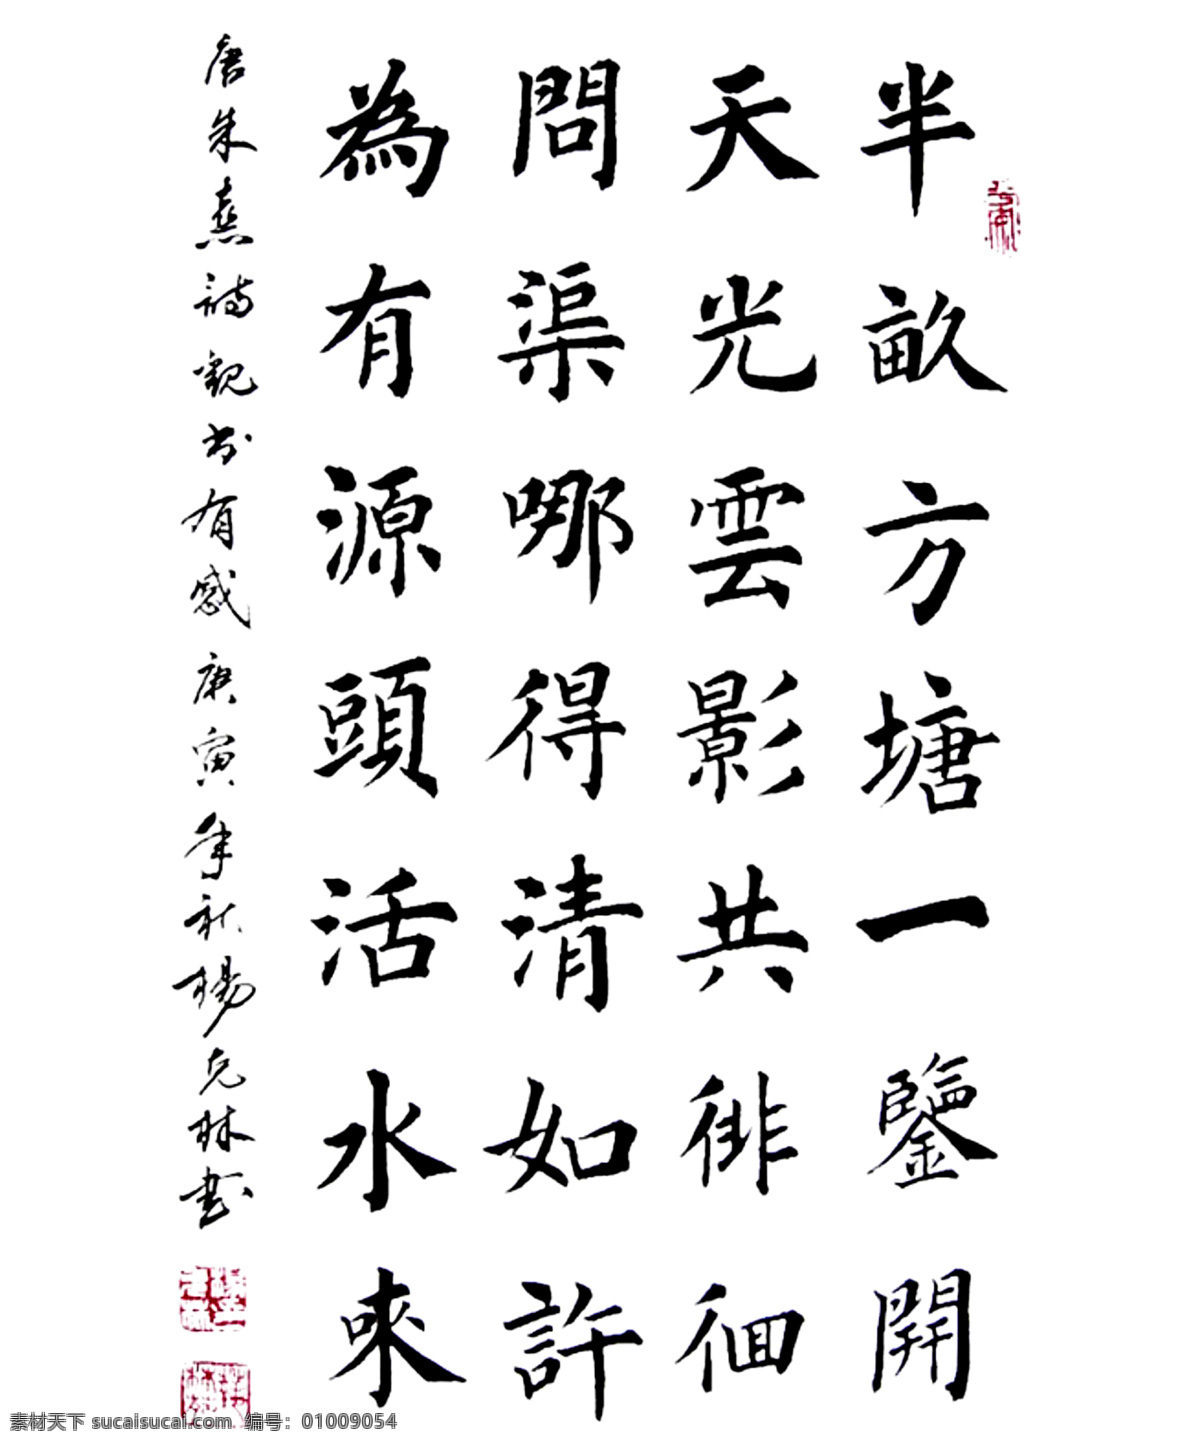 半畝方塘一鑒開
天光雲影共徘徊
問渠哪得清如許
為有源頭活水來
唐朱熹詩觀书有感庚寅年秋楊克林書
素材天下 sucaisucai.com 编号：01009054